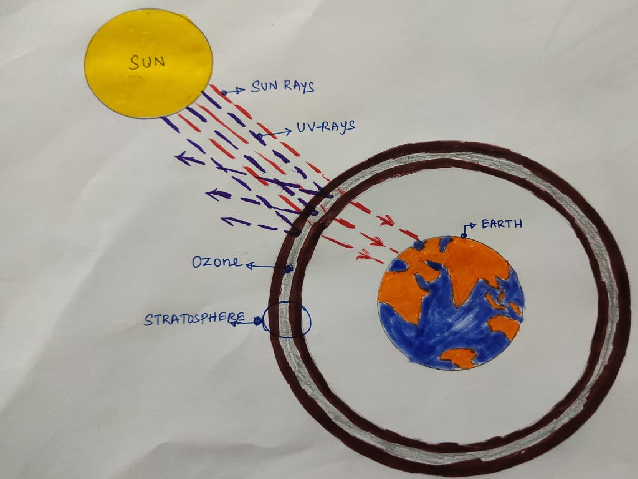 SUN
SUN RAYS
UV-RAYS
EARTH
OZONE
STRATOSPHERE